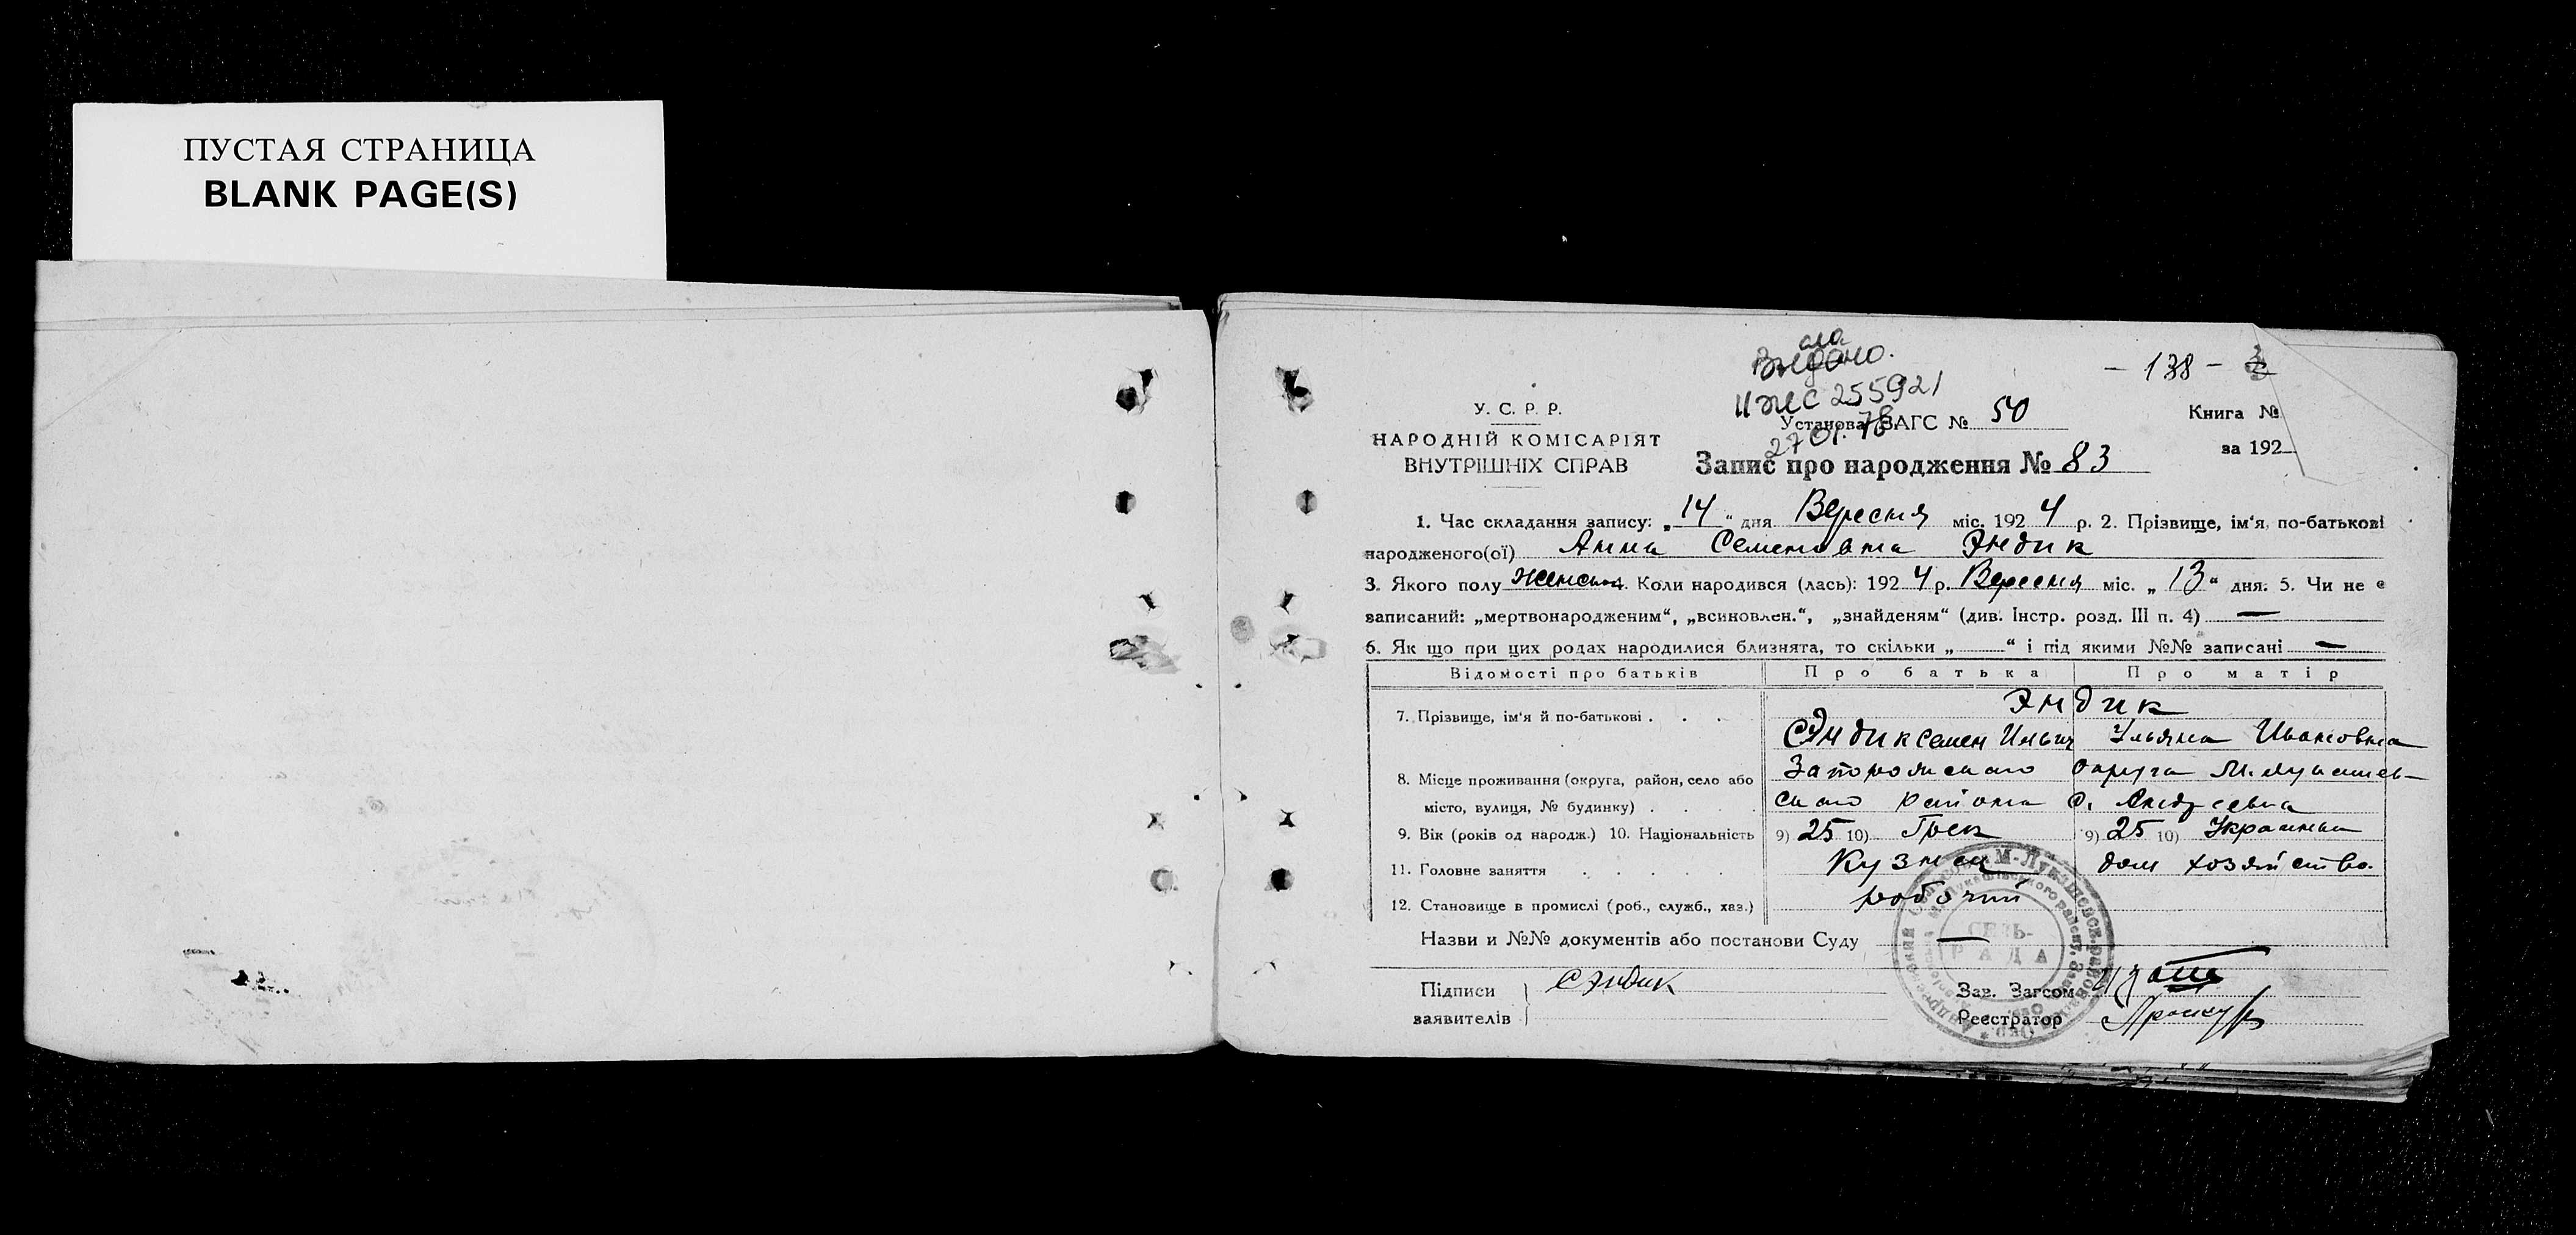 ПУСТАЯ СТРАНИЦА
BLANK PAGE(S)
Выдано.
II ЖС 255921
27 01. 78
- 138 -
У. С. Р. Р.
НАРОДНІЙ КОМІСАРІЯТ
ВНУТРІШНІХ СПРАВ
Установа ЗАГС № 50
Книга №
за 192
Запис про народження № 83
1. Час складання запису: „14“ дня Вересня міс. 1924 р. 2. Прізвище, ім‘я, по-батькові
народженого(ої) Анна Семеновна Эндик
3. Якого полу женск. 4. Коли народився (лась): 1924 р. Вересня міс. „13“ дня. 5. Чи не є
записаний: „мертвонародженим“, „всиновлен.“, „знайденям“ (див. Інстр. розд. III п. 4) —
6. Як що при цих родах народилися близнята, то скільки „ “ і під якими №№ записані —
Відомості про батьків Про батька Про матір
Эндик
7. Прізвище, ім‘я й по-батькові . . . Эндик Семен Ильич Ульяна Ивановна
8. Місце проживання (округа, район, село або Запорожскаго округа М. Лукашев-
місто, вулиця, № будинку) . . . . скаго района с. Андреевка
9. Вік (років од народж.) 10. Національність 9) 25 10) Грек 9) 25 10) Украинка
11. Головне заняття . . . . . Кузнец дом хозяйство
12. Становище в промислі (роб., служб., хаз.) робочий
Назви и №№ документів або постанови Суду —
Підписи заявителів С Эндик
Зав. Загсом
Реєстратор
СІЛЬ-
РАДА